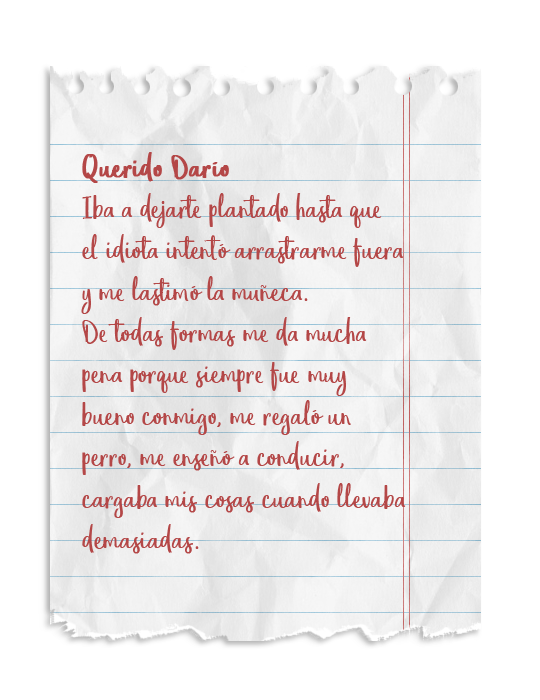 Querido Darío
Iba a dejarte plantado hasta que
el idiota intentó arrastrarme fuera
y me lastimó la muñeca.
De todas formas me da mucha
pena porque siempre fue muy
bueno conmigo, me regaló un
perro, me enseñó a conducir,
cargaba mis cosas cuando llevaba
demasiadas.